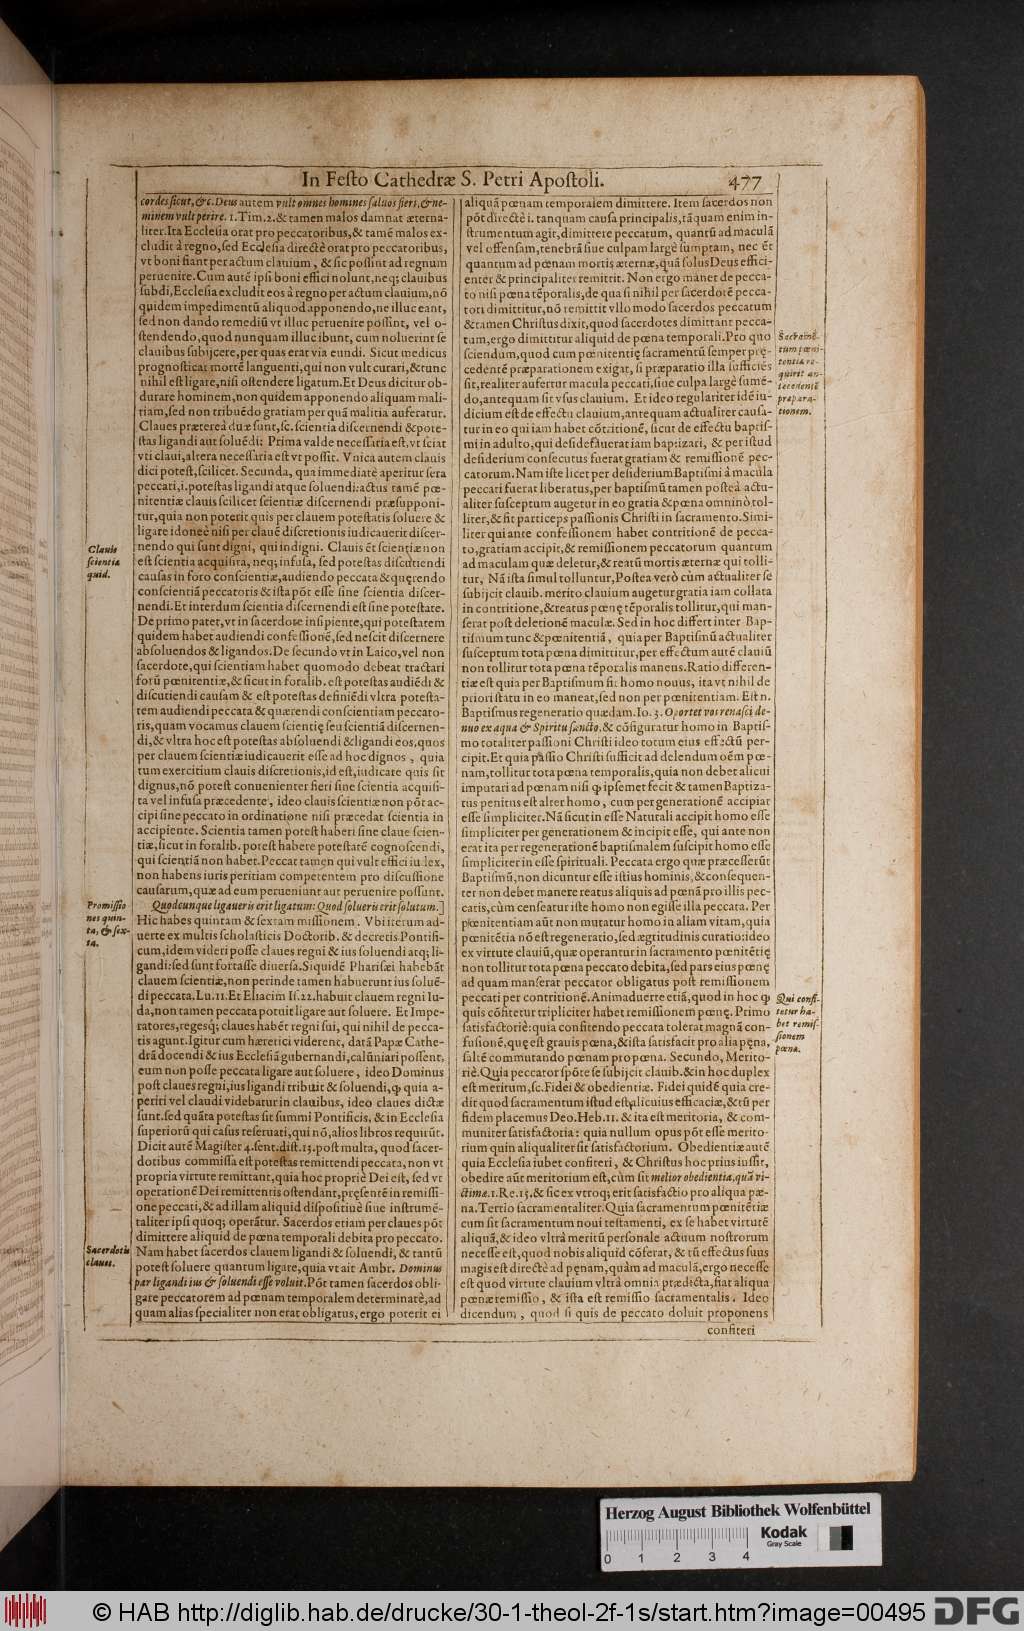 In Festo Cathedræ S. Petri Apostoli. 477
cordes sicut, &c. Deus autem vult omnes homines saluos fieri, & ne-
minem vult perire. 1. Tim. 2. & tamen malos damnat æterna-
liter. Ita Ecclesia orat pro peccatoribus, & tamẽ malos ex-
cludit à regno, sed Ecclesia directè orat pro peccatoribus,
vt boni fiant per actum clauium, & sic possint ad regnum
peruenire. Cum autẽ ipsi boni effici nolunt, neq; clauibus
subdi, Ecclesia excludit eos à regno per actum clauium, nõ
quidem impedimentũ aliquod apponendo, ne illuc eant,
sed non dando remediũ vt illuc peruenire possint, vel o-
stendendo, quod nunquam illuc ibunt, cum noluerint se
clauibus subijcere, per quas erat via eundi. Sicut medicus
prognosticat mortẽ languenti, qui non vult curari, & tunc
nihil est ligare, nisi ostendere ligatum. Et Deus dicitur ob-
durare hominem, non quidem apponendo aliquam mali-
tiam, sed non tribuẽdo gratiam per quã malitia auferatur.
Claues prætereà duæ sunt, sc. scientia discernendi & pote-
stas ligandi aut soluẽdi: Prima valde necessaria est, vt sciat
vti claui, altera necessaria est vt possit. Vnica autem clauis
dici potest, scilicet. Secunda, qua immediatè aperitur sera
peccati, i. potestas ligandi atque soluendi: actus tamẽ pœ-
nitentiæ clauis scilicet scientiæ discernendi præsupponi-
tur, quia non poterit quis per clauem potestatis soluere &
ligare idoneè nisi per clauẽ discretionis iudicauerit discer-
nendo qui sunt digni, qui indigni. Clauis ẽt scientiæ non
est scientia acquisita, neq; infusa, sed potestas discutiendi
causas in foro conscientiæ, audiendo peccata & quęrendo
conscientiã peccatoris & ista põt esse sine scientia discer-
nendi. Et interdum scientia discernendi est sine potestate.
De primo patet, vt in sacerdote insipiente, qui potestatem
quidem habet audiendi confessionẽ, sed nescit discernere
absoluendos & ligandos. De secundo vt in Laico, vel non
sacerdote, qui scientiam habet quomodo debeat tractari
forũ pœnitentiæ, & sicut in foralib. est potestas audiẽdi &
discutiendi causam & est potestas definiẽdi vltra potesta-
tem audiendi peccata & quærendi conscientiam peccato-
ris, quam vocamus clauem scientię seu scientiã discernen-
di, & vltra hoc est potestas absoluendi & ligandi eos, quos
per clauem scientiæ iudicauerit esse ad hoc dignos, quia
tum exercitium clauis discretionis, id est, iudicare quis sit
dignus, nõ potest conuenienter fieri sine scientia acquisi-
ta vel infusa præcedente, ideo clauis scientiæ non põt ac-
cipi sine peccato in ordinatione nisi præcedat scientia in
accipiente. Scientia tamen potest haberi sine claue scien-
tiæ, sicut in foralib. potest habere potestatẽ cognoscendi,
qui scientiã non habet. Peccat tamen qui vult effici iudex,
non habens iuris peritiam competentem pro discussione
causarum, quæ ad eum perueniunt aut peruenire possunt.
Quodcunque ligaueris erit ligatum: Quod solueris erit solutum.]
Hic habes quintam & sextam missionem. Vbi iterum ad-
uerte ex multis scholasticis Doctorib. & decretis Pontifi-
cum, idem videri posse claues regni & ius soluendi atq; li-
gandi: sed sunt fortasse diuersa. Siquidẽ Pharisæi habebãt
clauem scientiæ, non perinde tamen habuerunt ius soluẽ-
di peccata. Lu. 11. Et Eliacim Is. 22. habuit clauem regni Iu-
da, non tamen peccata potuit ligare aut soluere. Et Impe-
ratores, regesq; claues habẽt regni sui, qui nihil de pecca-
tis agunt. Igitur cum hæretici viderent, datã Papæ Cathe-
drã docendi & ius Ecclesiã gubernandi, calũniari possent,
eum non posse peccata ligare aut soluere, ideo Dominus
post claues regni, ius ligandi tribuit & soluendi, ꝙ quia a-
periri vel claudi videbatur in clauibus, ideo claues dictæ
sunt. sed quãta potestas sit summi Pontificis, & in Ecclesia
superiorũ qui casus reseruati, qui nõ, alios libros requirũt.
Dicit autẽ Magister 4. sent. dist. 13. post multa, quod sacer-
dotibus commissa est potestas remittendi peccata, non vt
propria virtute remittant, quia hoc propriè Dei est, sed vt
operationẽ Dei remittentis ostendant, pręsentẽ in remissi-
one peccati, & ad illam aliquid dispositiuè siue instrumẽ-
taliter ipsi quoq; operãtur. Sacerdos etiam per claues põt
dimittere aliquid de pœna temporali debita pro peccato.
Nam habet sacerdos clauem ligandi & soluendi, & tantũ
potest soluere quantum ligare, quia vt ait Ambr. Dominus
par ligandi ius & soluendi esse voluit. Põt tamen sacerdos obli-
gare peccatorem ad pœnam temporalem determinatè, ad
quam alias specialiter non erat obligatus, ergo poterit ei
Clauis
scientiæ
quid.
Promissio
nes quin-
ta, & sex-
ta.
Sacerdotis
claues.
aliquã pœnam temporalem dimittere. Item sacerdos non
põt directè i. tanquam causa principalis, tã quam enim in-
strumentum agit, dimittere peccatum, quantũ ad maculã
vel offensam, tenebrã siue culpam largè sumptam, nec ẽt
quantum ad pœnam mortis æternæ, quã solus Deus effici-
enter & principaliter remittit. Non ergo manet de pecca-
to nisi pœna tẽporalis, de qua si nihil per sacerdotẽ pecca-
tori dimittitur, nõ remittit vllo modo sacerdos peccatum
& tamen Christus dixit, quod sacerdotes dimittant pecca-
tum, ergo dimittitur aliquid de pœna temporali. Pro quo
sciendum, quod cum pœnitentię sacramentũ semper prę-
cedentẽ præparationem exigat, si præparatio illa sufficiẽs
sit, realiter aufertur macula peccati, siue culpa largè sumẽ-
do, antequam sit vsus clauium. Et ideo regulariter idẽ iu-
dicium est de effectu clauium, antequam actualiter causa-
tur in eo qui iam habet cõtritionẽ, sicut de effectu baptis-
mi in adulto, qui desiderauerat iam baptizari, & per istud
desiderium consecutus fuerat gratiam & remissionẽ pec-
catorum. Nam iste licet per desiderium Baptismi à macula
peccati fuerat liberatus, per baptismũ tamen posteà actu-
aliter susceptum augetur in eo gratia & pœna omninò tol-
liter, & fit particeps passionis Christi in sacramento. Simi-
liter qui ante confessionem habet contritionẽ de pecca-
to, gratiam accipit, & remissionem peccatorum quantum
ad maculam quæ deletur, & reatũ mortis æternæ qui tolli-
tur, Nã ista simul tolluntur, Postea verò cùm actualiter se
subijcit clauib. merito clauium augetur gratia iam collata
in contritione, & reatus pœnę tẽporalis tollitur, qui man-
serat post deletionẽ maculæ. Sed in hoc differt inter Bap-
tismum tunc & pœnitentiã, quia per Baptismũ actualiter
susceptum tota pœna dimittitur, per effectum autẽ clauiũ
non tollitur tota pœna tẽporalis maneus. Ratio differen-
tiæ est quia per Baptismum fit homo nouus, ita vt nihil de
priori statu in eo maneat, sed non per pœnitentiam. Est n.
Baptismus regeneratio quædam. Io. 3. Oportet vos renasci de-
nuo ex aqua & Spiritu sancto, & cõfiguratur homo in Baptis-
mo totaliter passioni Christi ideo totum eius effectũ per-
cipit. Et quia passio Christi sufficit ad delendum oẽm pœ-
nam, tollitur tota pœna temporalis, quia non debet alicui
imputari ad pœnam nisi ꝙ ipsemet fecit & tamen Baptiza-
tus penitus est alter homo, cum per generationẽ accipiat
esse simpliciter. Nã sicut in esse Naturali accipit homo esse
simpliciter per generationem & incipit esse, qui ante non
erat ita per regenerationẽ baptismalem suscipit homo esse
simpliciter in esse spirituali. Peccata ergo quæ præcesserũt
Baptismũ, non dicuntur esse istius hominis, & consequen-
ter non debet manere reatus aliquis ad pœnã pro illis pec-
catis, cùm censeatur iste homo non egisse illa peccata. Per
pœnitentiam aũt non mutatur homo in aliam vitam, quia
pœnitẽtia nõ est regeneratio, sed ægritudinis curatio: ideo
ex virtute clauiũ, quæ operantur in sacramento pœnitẽtię
non tollitur tota pœna peccato debita, sed pars eius pœnę
ad quam manserat peccator obligatus post remissionem
peccati per contritionẽ. Animaduerte etiã, quod in hoc ꝙ
quis cõfitetur tripliciter habet remissionem pœnę. Primo
satisfactoriè: quia confitendo peccata tolerat magnã con-
fusionẽ, quę est grauis pœna, & ista satisfacit pro alia pęna,
saltẽ commutando pœnam pro pœna. Secundo, Merito-
riè. Quia peccator spõte se subijcit clauib. & in hoc duplex
est meritum, sc. Fidei & obedientiæ. Fidei quidẽ quia cre-
dit quod sacramentum istud est alicuius efficaciæ, & tũ per
fidem placemus Deo. Heb. 11. & ita est meritoria, & com-
muniter satisfactoria: quia nullum opus põt esse merito-
rium quin aliqualiter sit satisfactorium. Obedientiæ autẽ
quia Ecclesia iubet confiteri, & Christus hoc prius iussit,
obedire aũt meritorium est, cùm sit melior obedientia, quã vi-
ctimæ. 1. Re. 15. & sic ex vtroq; erit satisfactio pro aliqua pæ-
na. Tertio sacramentaliter. Quia sacramentum pœnitẽtiæ
cum sit sacramentum noui testamenti, ex se habet virtutẽ
aliquã, & ideo vltrà meritũ personale actuum nostrorum
necesse est, quod nobis aliquid cõferat, & tũ effectus suus
magis est directè ad pęnam, quàm ad maculã, ergo necesse
est quod virtute clauium vltrà omnia prædicta, fiat aliqua
pœnæ remissio, & ista est remissio sacramentalis. Ideo
dicendum, quod si quis de peccato doluit proponens
confiteri
Sacramẽ-
tum pœni-
tentiæ re-
quirit an-
tecedentẽ
præpara-
tionem.
Qui confi-
tetur ha-
bet remis-
sionem
pœnæ.
Herzog August Bibliothek Wolfenbüttel
0 1 2 3 4
Kodak
Gray Scale
© HAB http://diglib.hab.de/drucke/30-1-theol-2f-1s/start.htm?image=00495 DFG